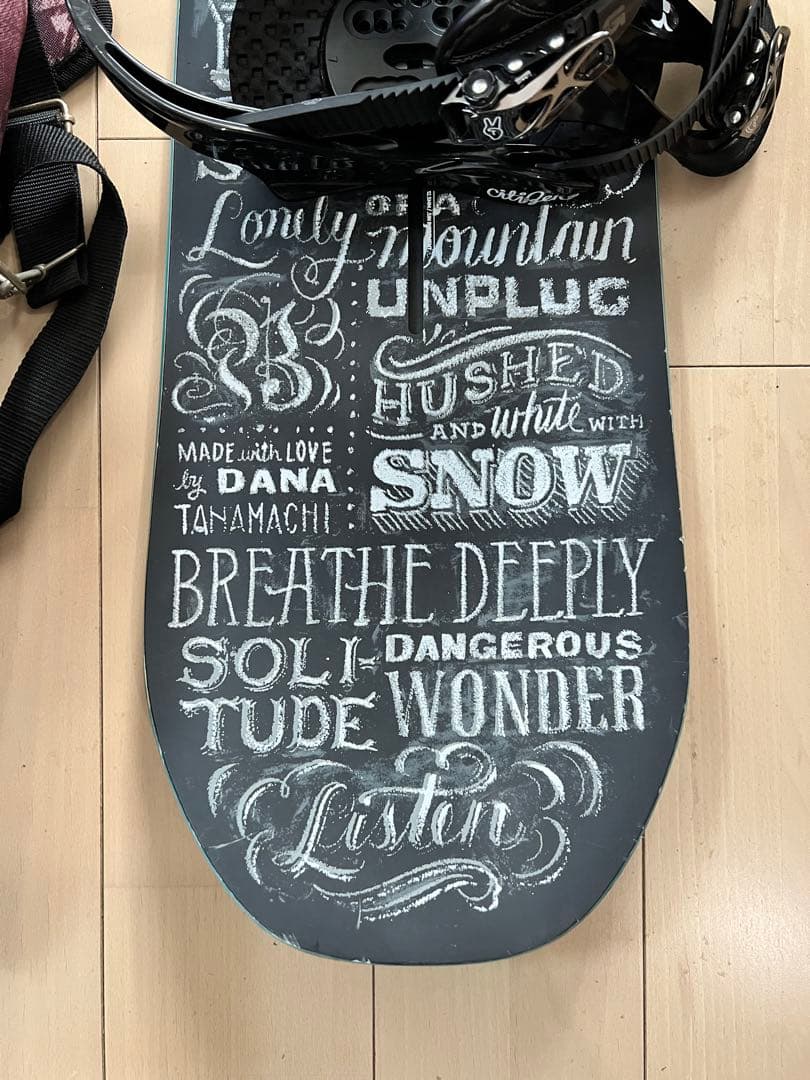 Citizen
Lonely
OF A
mountain
UNPLUG
B
HUSHED
AND white WITH
SNOW
MADE with LOVE
by DANA
TAMAMACHI
BREATHE DEEPLY
SOLI-
TUDE
DANGEROUS
WONDER
Listen